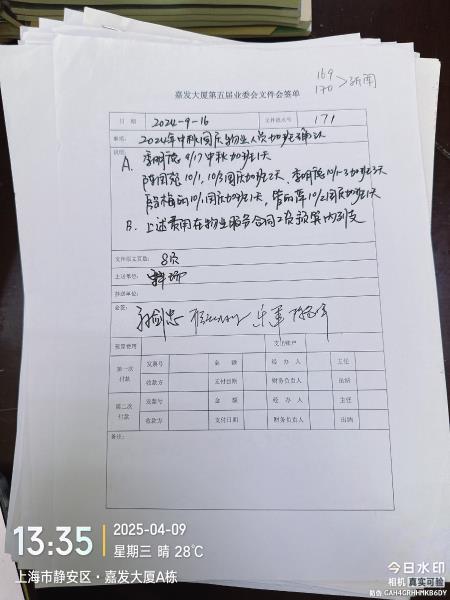 169
170 > 新闸
嘉发大厦第五届业委会文件会签单
日 期 2024-9-16 文件流水号 171
事项: 2024年中秋国庆物业人员加班确认
说明:
A. 李明德 9/17中秋加班1天
10/1, 10/3国庆加班2天、李明德10/1-3加班3天
10/1国庆加班1天, 10/2国庆加班1天
B. 上述费用在物业服务合同工资预算内列支
文件原文页数: 8页
上述单位:
抄送单位:
会签:
预算费用 支出账户
第一次付款 发票号 金 额 经 办 人 主任
收款方 支付日期 财务负责人 出纳
第二次付款 发票号 金 额 经 办 人 主任
收款方 支付日期 财务负责人 出纳
备注:
13:35 2025-04-09
星期三 晴 28℃
上海市静安区·嘉发大厦A栋
今日水印
相机 真实可验
防伪 GAH4GRHHMKB6DY